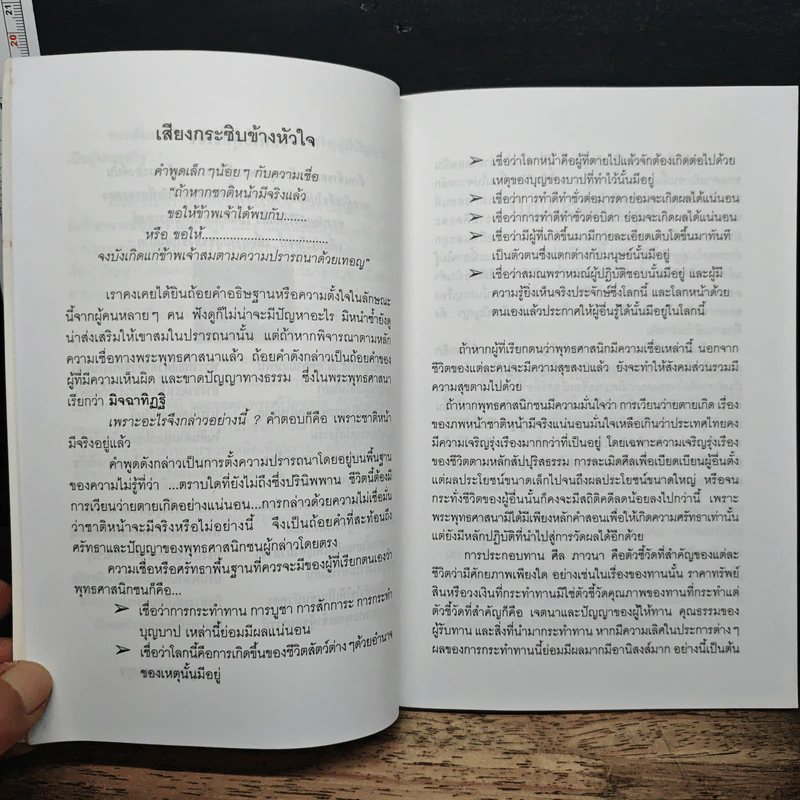 21
20
เสียงกระซิบข้างหัวใจ
คำพูดเล็ก ๆน้อย ๆ กับความเชื่อ
"ถ้าหากชาติหน้ามีจริงแล้ว
ขอให้ข้าพเจ้าได้พบกับ.......
หรือ ขอให้....................................
จงบังเกิดแก่ข้าพเจ้าสมตามความปรารถนาด้วยเทอญ"
เราคงเคยได้ยินถ้อยคำอธิษฐานหรือความตั้งใจในลักษณะ
นี้จากผู้คนหลายๆ คน ฟังดูก็ไม่น่าจะมีปัญหาอะไร มิหนำซ้ำยังดู
น่าส่งเสริมให้เขาสมในปรารถนานั้น แต่ถ้าหากพิจารณาตามหลัก
ความเชื่อทางพระพุทธศาสนาแล้ว ถ้อยคำดังกล่าวเป็นถ้อยคำของ
ผู้ที่มีความเห็นผิด และขาดปัญญาทางธรรม ซึ่งในพระพุทธศาสนา
เรียกว่า มิจฉาทิฏฐิ
เพราะอะไรจึงกล่าวอย่างนี้ ? คำตอบก็คือ เพราะชาติหน้า
มีจริงอยู่แล้ว
คำพูดดังกล่าวเป็นการตั้งความปรารถนาโดยอยู่บนพื้นฐาน
ของความไม่รู้ที่ว่า ...ตราบใดที่ยังไม่ถึงซึ่งปรินิพพาน ชีวิตนี้ต้องมี
การเวียนว่ายตายเกิดอย่างแน่นอน...การกล่าวด้วยความไม่เชื่อมั่น
ว่าชาติหน้าจะมีจริงหรือไม่อย่างนี้ จึงเป็นถ้อยคำที่สะท้อนถึง
ศรัทธาและปัญญาของพุทธศาสนิกชนผู้กล่าวโดยตรง
ความเชื่อหรือศรัทธาพื้นฐานที่ควรจะมีของผู้ที่เรียกตนเองว่า
พุทธศาสนิกชนก็คือ...
➢ เชื่อว่าการกระทำทาน การบูชา การสักการะ การกระทำ
บุญบาป เหล่านี้ย่อมมีผลแน่นอน
➢ เชื่อว่าโลกนี้คือการเกิดขึ้นของชีวิตสัตว์ต่างๆด้วยอำนาจ
ของเหตุนั้นมีอยู่
➢ เชื่อว่าโลกหน้าคือผู้ที่ตายไปแล้วจักต้องเกิดต่อไปด้วย
เหตุของบุญของบาปที่ทำไว้นั้นมีอยู่
➢ เชื่อว่าการทำดีทำชั่วต่อมารดาย่อมจะเกิดผลได้แน่นอน
➢ เชื่อว่าการทำดีทำชั่วต่อบิดา ย่อมจะเกิดผลได้แน่นอน
➢ เชื่อว่ามีผู้ที่เกิดขึ้นมามีกายละเอียดเติบโตขึ้นมาทันที
เป็นตัวตนซึ่งแตกต่างกับมนุษย์นั้นมีอยู่
➢ เชื่อว่าสมณพราหมณ์ผู้ปฏิบัติชอบนั้นมีอยู่ และผู้มี
ความรู้ยิ่งเห็นจริงประจักษ์ซึ่งโลกนี้ และโลกหน้าด้วย
ตนเองแล้วประกาศให้ผู้อื่นรู้ได้นั้นมีอยู่ในโลกนี้
ถ้าหากผู้ที่เรียกตนว่าพุทธศาสนิกมีความเชื่อเหล่านี้ นอกจาก
ชีวิตของแต่ละคนจะมีความสุขสงบแล้ว ยังจะทำให้สังคมส่วนรวมมี
ความสุขตามไปด้วย
ถ้าหากพุทธศาสนิกชนมีความมั่นใจว่า การเวียนว่ายตายเกิด เรื่อง
ของภพหน้าชาติหน้ามีจริงแน่นอนมั่นใจเหลือเกินว่าประเทศไทยคง
มีความเจริญรุ่งเรืองมากกว่าที่เป็นอยู่ โดยเฉพาะความเจริญรุ่งเรือง
ของชีวิตตามหลักสัปปุริสธรรม การละเมิดศีลเพื่อเบียดเบียนผู้อื่นตั้ง
แต่ผลประโยชน์ขนาดเล็กไปจนถึงผลประโยชน์ขนาดใหญ่ หรือจน
กระทั่งชีวิตของผู้อื่นนั้นก็คงจะมีสถิติคดีลดน้อยลงไปกว่านี้ เพราะ
พระพุทธศาสนามิได้มีเพียงหลักคำสอนเพื่อให้เกิดความศรัทธาเท่านั้น
แต่ยังมีหลักปฏิบัติที่นำไปสู่การวัดผลได้อีกด้วย
การประกอบทาน ศีล ภาวนา คือตัวชี้วัดที่สำคัญของแต่ละ
ชีวิตว่ามีศักยภาพเพียงใด อย่างเช่นในเรื่องของทานนั้น ราคาทรัพย์
สินหรือวงเงินที่กระทำทานมิใช่ตัวชี้วัดคุณภาพของทานที่กระทำแต่
ตัวชี้วัดที่สำคัญก็คือ เจตนาและปัญญาของผู้ให้ทาน คุณธรรมของ
ผู้รับทาน และสิ่งที่นำมากระทำทาน หากมีความเลิศในประการต่างๆ
ผลของการกระทำทานนี้ย่อมมีผลมากมีอานิสงส์มาก อย่างนี้เป็นต้น